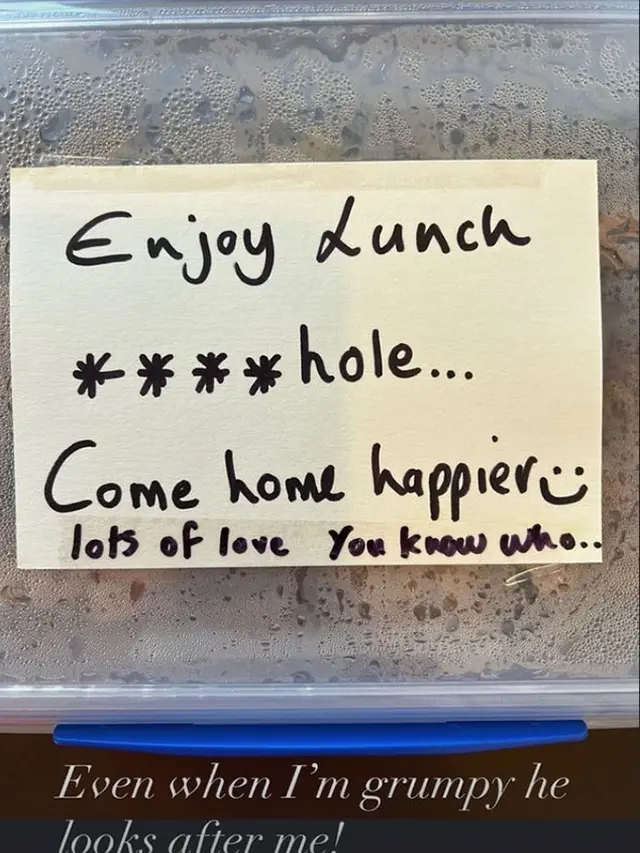 Enjoy Lunch
****hole...
Come home happier
lots of love You know who..
Even when I'm grumpy he
looks after me!